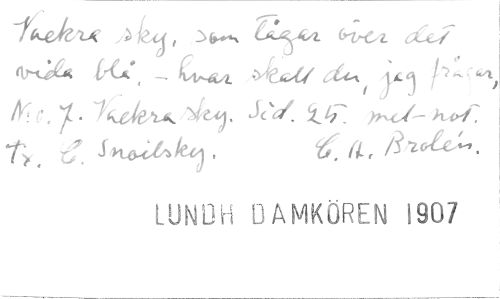 Vackra sky, som tågar över det
vida blå, – hvar skall du, jag frågar,
N:o. 7. Vackra sky. Sid. 25. met-not.
Tx. C. Snoilsky. C. A. Brolén.
LUNDH DAMKÖREN 1907